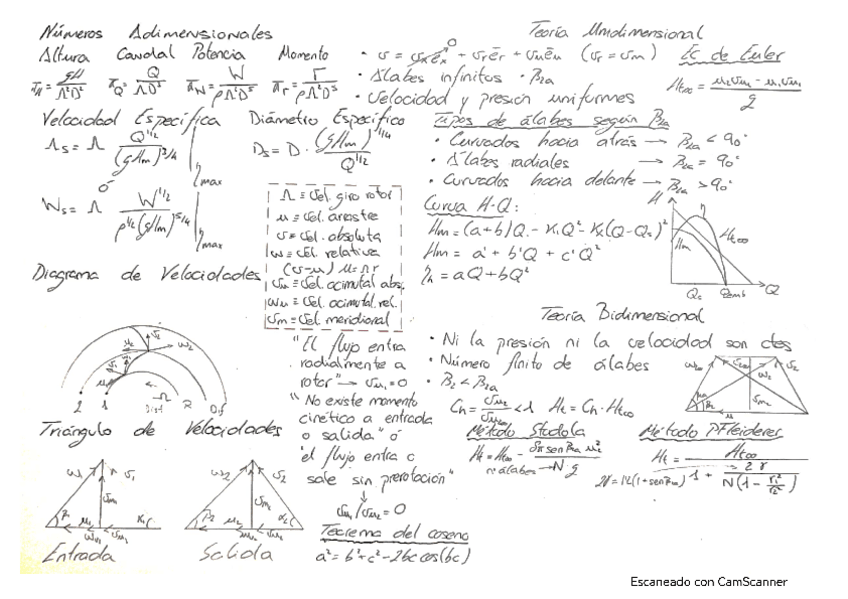 Números Adimensionales
Altura Caudal Potencia Momento
π_H = gH/Λ²D² π_Q = Q/ΛD³ π_W = W/ρΛ³D⁵ π_Γ = Γ/ρΛ²D⁵
Velocidad Específica
Λs = Λ Q^1/2/(gHm)^3/4 |ηmax
ó
Ws = Λ W^1/2/ρ^1/2(gHm)^5/4 |ηmax
Diámetro Específico
Ds = D · (gHm)^1/4/Q^1/2
Λ ≡ Vel. giro rotor
u ≡ Vel. arrastre
v ≡ Vel. absoluta
w ≡ Vel. relativa
(v-u) u = Λr
vu ≡ Vel. acimutal abs.
wu ≡ Vel. acimutal rel.
vm ≡ Vel. meridional
Diagrama de Velocidades
Triángulo de Velocidades
Entrada
Salida
"El flujo entra
radialmente a
rotor" → vu1 = 0
"No existe momento
cinético a entrada
o salida" ó
"el flujo entra o
sale sin prerotación"
↓
vu1/vu2 = 0
Teorema del coseno
a² = b² + c² - 2bc cos(bc)
Teoría Unidimensional
· v = vxex + vrer + vueu (vr = vm)
0
· Álabes infinitos · β2a
· Velocidad y presión uniformes
Ec de Euler
Ht∞ = u2vu2 - u1vu1/g
Tipos de álabes según β2a
· Curvados hacia atrás → β2a < 90°
· Álabes radiales → β2a = 90°
· Curvados hacia delante → β2a > 90°
Curva H-Q:
Hm = (a+b)Q - K1Q² - K2(Q-Qo)²
Hm = a' + b'Q + c'Q²
η = aQ + bQ²
H
Ht∞
Hm
Qo
Q
Teoría Bidimensional
· Ni la presión ni la velocidad son ctes
· Número finito de álabes
· β2 < β2a
Ch = vu2/vu2∞ < 1 Ht = Ch · Ht∞
Método Stodola
Ht = Ht∞ - δπ sen β2a u2²/N g
nº álabes → N
Método Pfleiderer
Ht = Ht∞/1 + 2γ/N(1 - r1²/r2²)
Escaneado con CamScanner